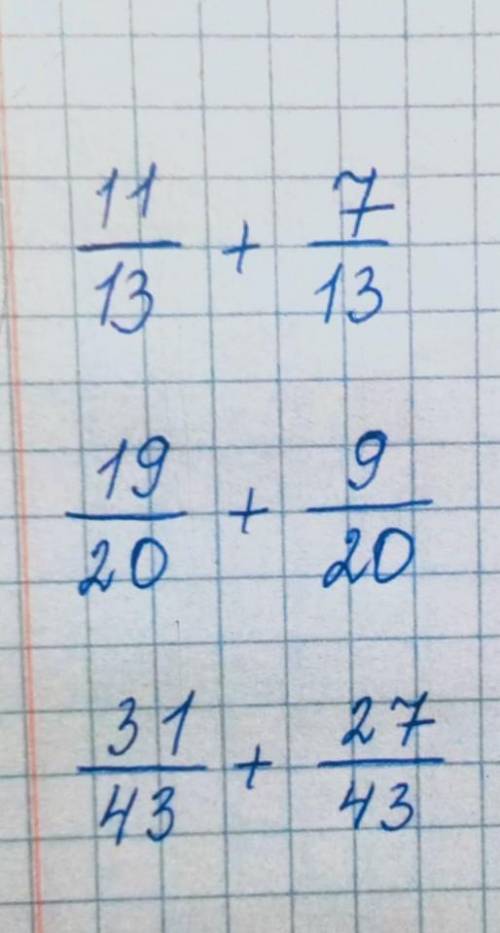 11/13 + 7/13
19/20 + 9/20
31/43 + 27/43